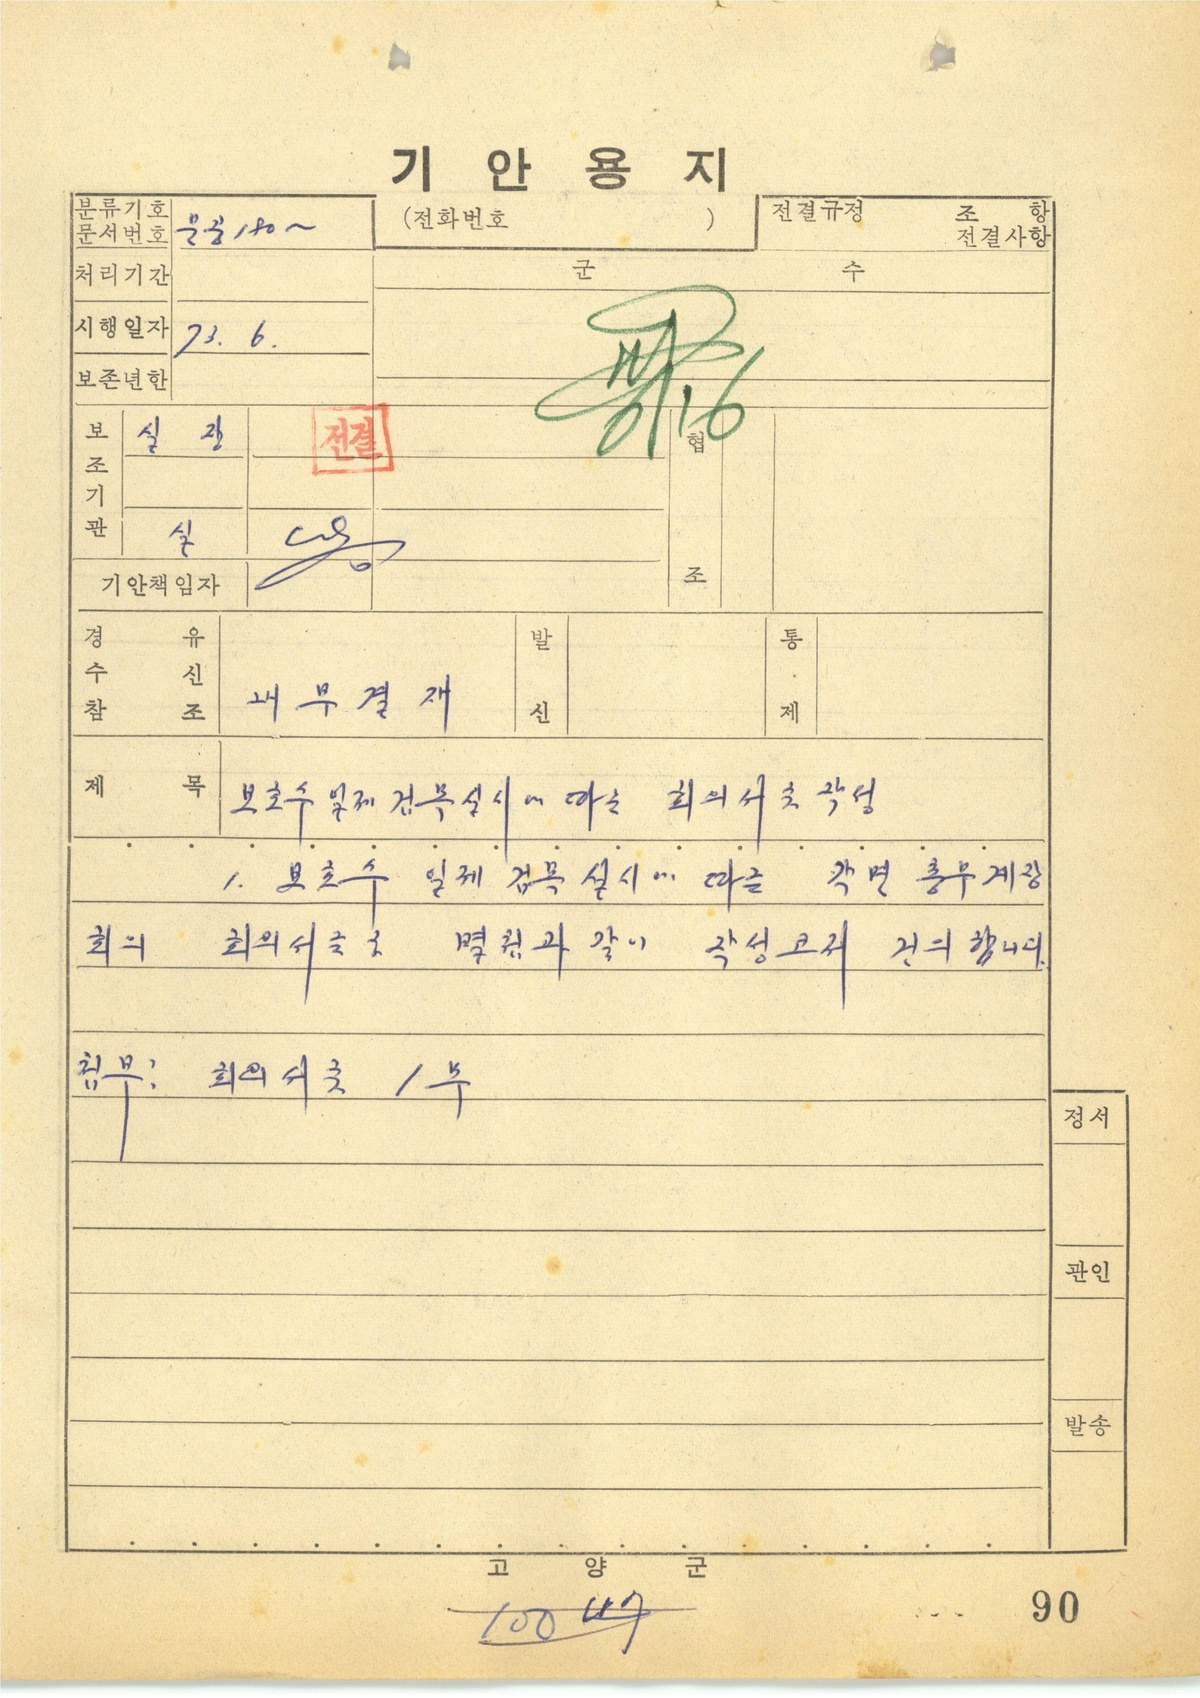 기 안 용 지
분류기호
문서번호 문공 180~
(전화번호 )
전결규정 조 항
전결사항
처리기간
군 수
시행일자 73. 6.
보존년한
보조기관 실 장
전결
16
협조
실
기안책임자
경 유
수 신
참 조
내 무 결 재
발신
통제
제 목 보호수 일제 검목 실시에 따른 회의서류 작성
1. 보호수 일제 검목 실시에 따른 각면 총무계장
회의 회의서류를 별첨과 같이 작성코저 건의 합니다.
첨부: 회의서류 1부
정서
관인
발송
고 양 군
100
90